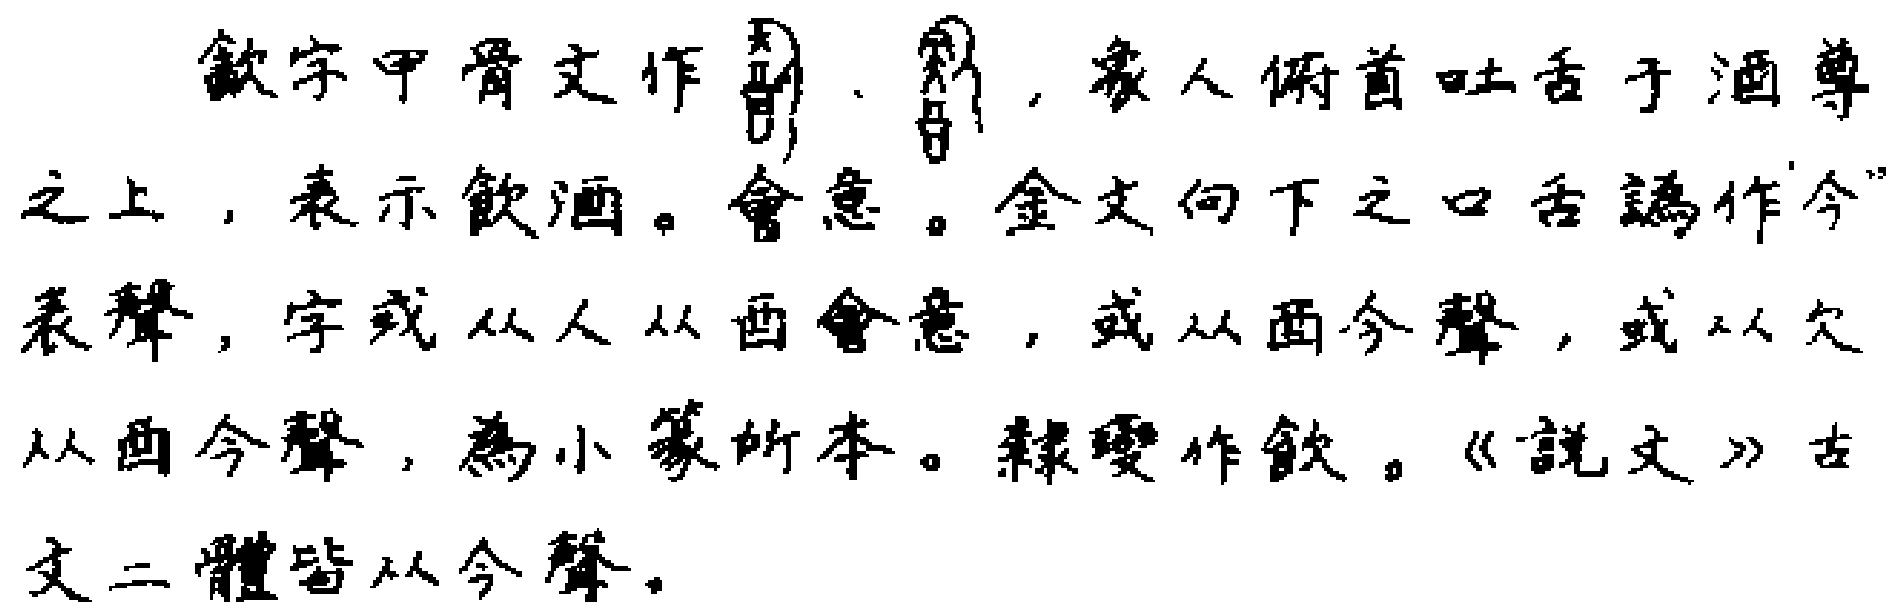 歙字甲骨文作、,象人俯首吐舌于酒尊
之上,表示飲酒。會意。金文向下之口舌譌作“今”
表聲,字或从人从酉會意,或从酉今聲,或从欠
从酉今聲,為小篆所本。隸變作飲。《説文》古
文二體皆从今聲。